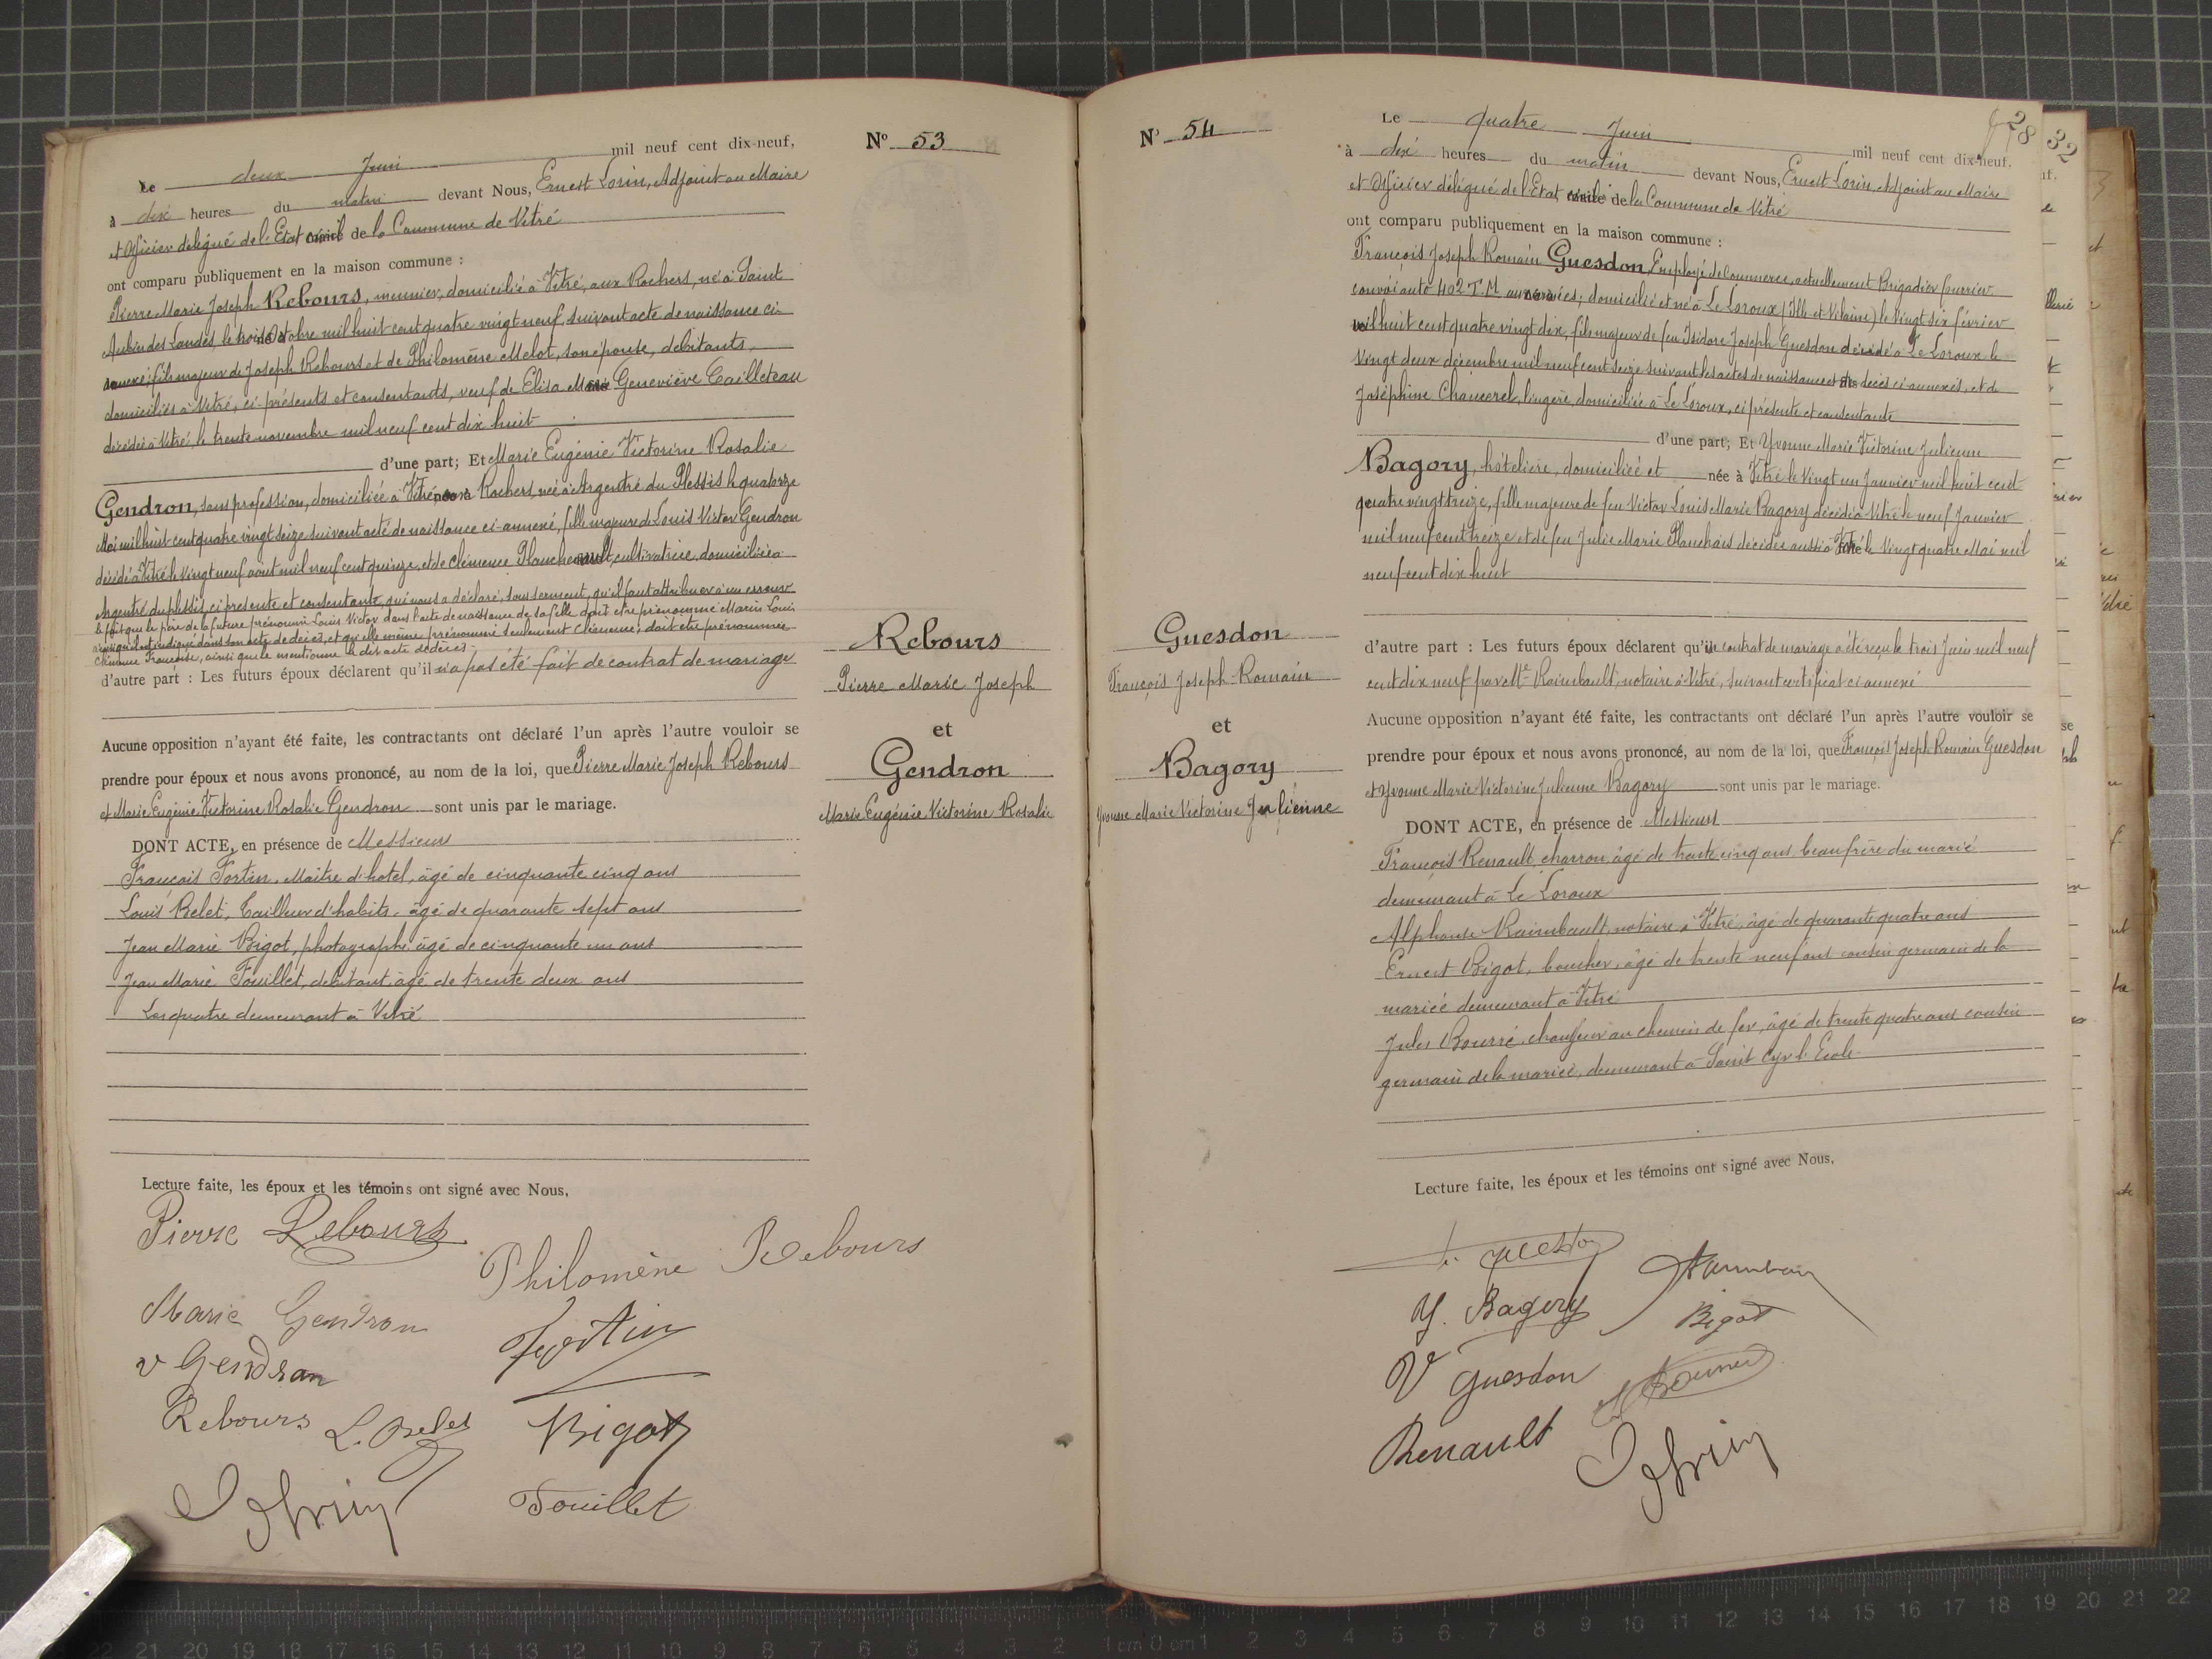 Nº 53
Le deux Juin mil neuf cent dix-neuf,
à dix heures du matin devant Nous, Ernest Lorin, Adjoint au Maire
et Officier délégué de l'Etat civil de la Commune de Vitré
ont comparu publiquement en la maison commune :
Pierre Marie Joseph Rebours, meunier, domicilié à Vitré, aux Rochers, né à Saint
Aubin des Landes, le trois Octobre mil huit cent quatre vingt neuf, suivant acte de naissance ci-
annexé; fils majeur de Joseph Rebours et de Philomène Melot, son épouse, débitants,
domiciliés à Vitré, ci-présents et consentants, veuf de Elisa Marie Geneviève Cailleteau
décédée à Vitré, le trente novembre mil neuf cent dix huit
d'une part; Et Marie Eugénie Victorine Rosalie
Gendron, sans profession, domiciliée à Vitré, aux Rochers, née à Argentré du Plessis le quatorze
Mai mil huit cent quatre vingt seize suivant acte de naissance ci-annexé, fille majeure de Louis Victor Gendron
décédé à Vitré le Vingt neuf août mil neuf cent quinze, et de Clémence Planchenault, cultivatrice, domiciliée à
Argentré du plessis, ci présente et consentante, qui nous a déclaré, sous serment, qu'il faut attribuer à une erreur
le fait que le père de la future prénommé Louis Victor dans l'acte de naissance de sa fille doit être prénommé Marin Louis
ainsi qu'il est indiqué dans son acte de décès, et qu'elle même prénommée seulement Clémence; doit être prénommée
Clémence Françoise, ainsi que le mentionne le dit acte de décès -
d'autre part : Les futurs époux déclarent qu'il n'a pas été fait de contrat de mariage
Aucune opposition n'ayant été faite, les contractants ont déclaré l'un après l'autre vouloir se
prendre pour époux et nous avons prononcé, au nom de la loi, que Pierre Marie Joseph Rebours
et Marie Eugénie Victorine Rosalie Gendron sont unis par le mariage.
DONT ACTE, en présence de Messieurs
François Fortin, Maître d'hotel, âgé de cinquante cinq ans
Louis Belet, Tailleur d'habits, âgé de quarante sept ans
Jean Marie Bigot, photographe âgé de cinquante un ans
Jean Marie Fouillet, débitant, âgé de trente deux ans
Les quatre demeurant à Vitré
Lecture faite, les époux et les témoins ont signé avec Nous,
Pierre Rebours
Philomène Rebours
Marie Gendron
Fortin
v Gendron
Rebours L. Belet
Bigot
Lorin
Fouillet
Rebours
Pierre Marie Joseph
et
Gendron
Marie Eugénie Victorine Rosalie
Nº 54
Guesdon
François Joseph Romain
et
Bagory
Yvonne Marie Victorine Julienne
28
32
Le quatre Juin mil neuf cent dix-neuf,
à dix heures du matin devant Nous, Ernest Lorin Adjoint au Maire
et Officier délégué de l'Etat civil de la Commune de Vitré
ont comparu publiquement en la maison commune :
François Joseph Romain Guesdon, Employé de Commerce, actuellement Brigadier fourrier
convoi auto 402 T.M aux armées; domicilié et né à Le Loroux (Ille et Vilaine) le Vingt six février
mil huit cent quatre vingt dix, fils majeur de feu Isidore Joseph Guesdon décédé à Le Loroux le
Vingt deux décembre mil neuf cent seize suivant les actes de naissance et de décès ci-annexés, et de
Joséphine Chancerel, lingère, domiciliée à Le Loroux, ci présente et consentante
d'une part; Et Yvonne Marie Victorine Julienne
Bagory, hôtelière, domiciliée et née à Vitré le Vingt un Janvier mil huit cent
quatre vingt treize, fille majeure de feu Victor Louis Marie Bagory décédé à Vitré le neuf Janvier
mil neuf cent treize et de feu Julie Marie Planchais décédée aussi à Vitré le Vingt quatre Mai mil
neuf cent dix huit
d'autre part : Les futurs époux déclarent qu'un contrat de mariage a été reçu le trois Juin mil neuf
cent dix neuf par Me Raimbault, notaire à Vitré, suivant certificat ci annexé
Aucune opposition n'ayant été faite, les contractants ont déclaré l'un après l'autre vouloir se
prendre pour époux et nous avons prononcé, au nom de la loi, que François Joseph Romain Guesdon
et Yvonne Marie Victorine Julienne Bagory sont unis par le mariage.
DONT ACTE, en présence de Messieurs
François Renault, charron, âgé de trente cinq ans, beau frère du marié
demeurant à Le Loroux
Alphonse Raimbault, notaire à Vitré, âgé de quarante quatre ans
Ernest Bigot, boucher, âgé de trente neuf ans cousin germain de la
mariée demeurant à Vitré
Jules Bourré, chauffeur au chemin de fer, âgé de trente quatre ans cousin
germain de la mariée, demeurant à Saint Cyr l'Ecole
Lecture faite, les époux et les témoins ont signé avec Nous,
Y. Bagory
Bigot
V Guesdon
Renault
Lorin